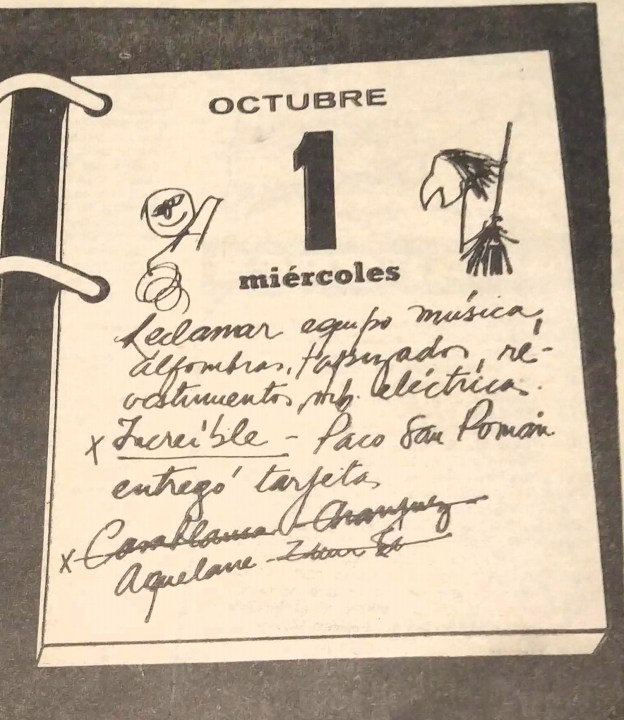 OCTUBRE
1
miércoles
Reclamar equipo música,
alfombras, tapizados, re-
vestimientos, eléctricas.
x Increíble - Paco San Román
entregó tarjetas
x Casablanca - Aranjuez
Aquelarre -